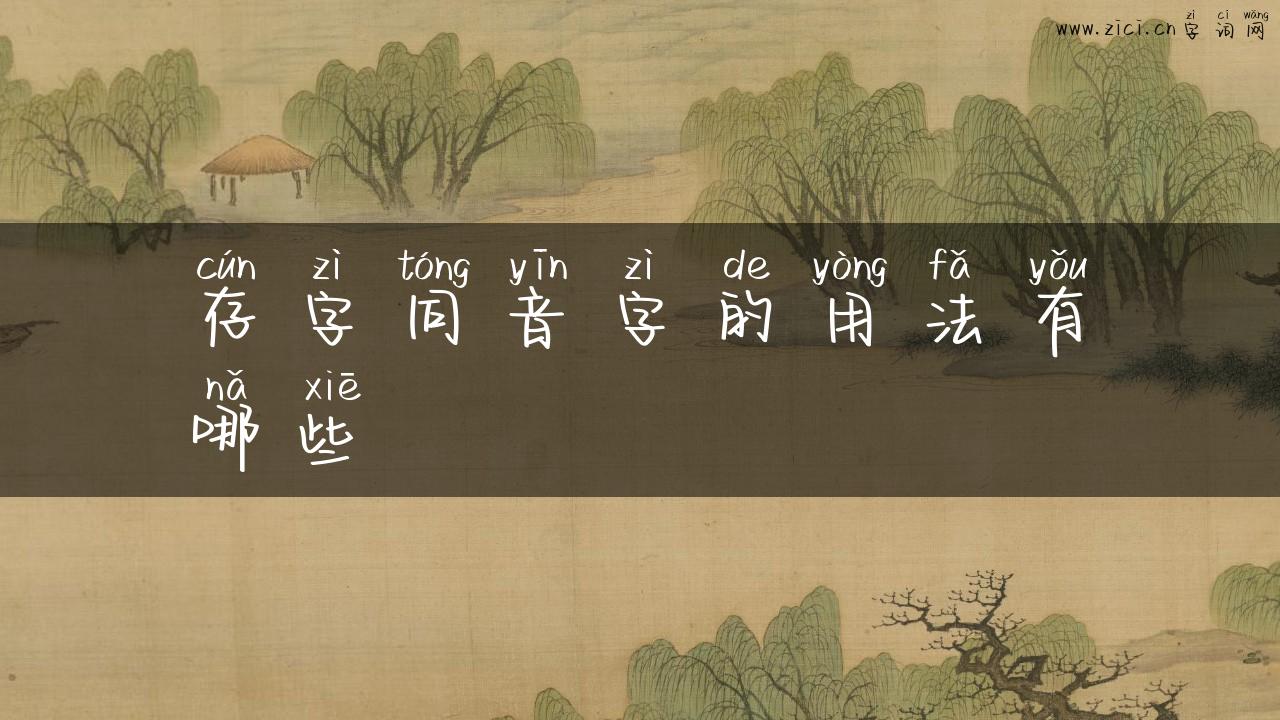 zì cí wǎng
www.zici.cn 字词网
cún zì tóng yīn zì de yòng fǎ yǒu
存字同音字的用法有
nǎ xiē
哪些